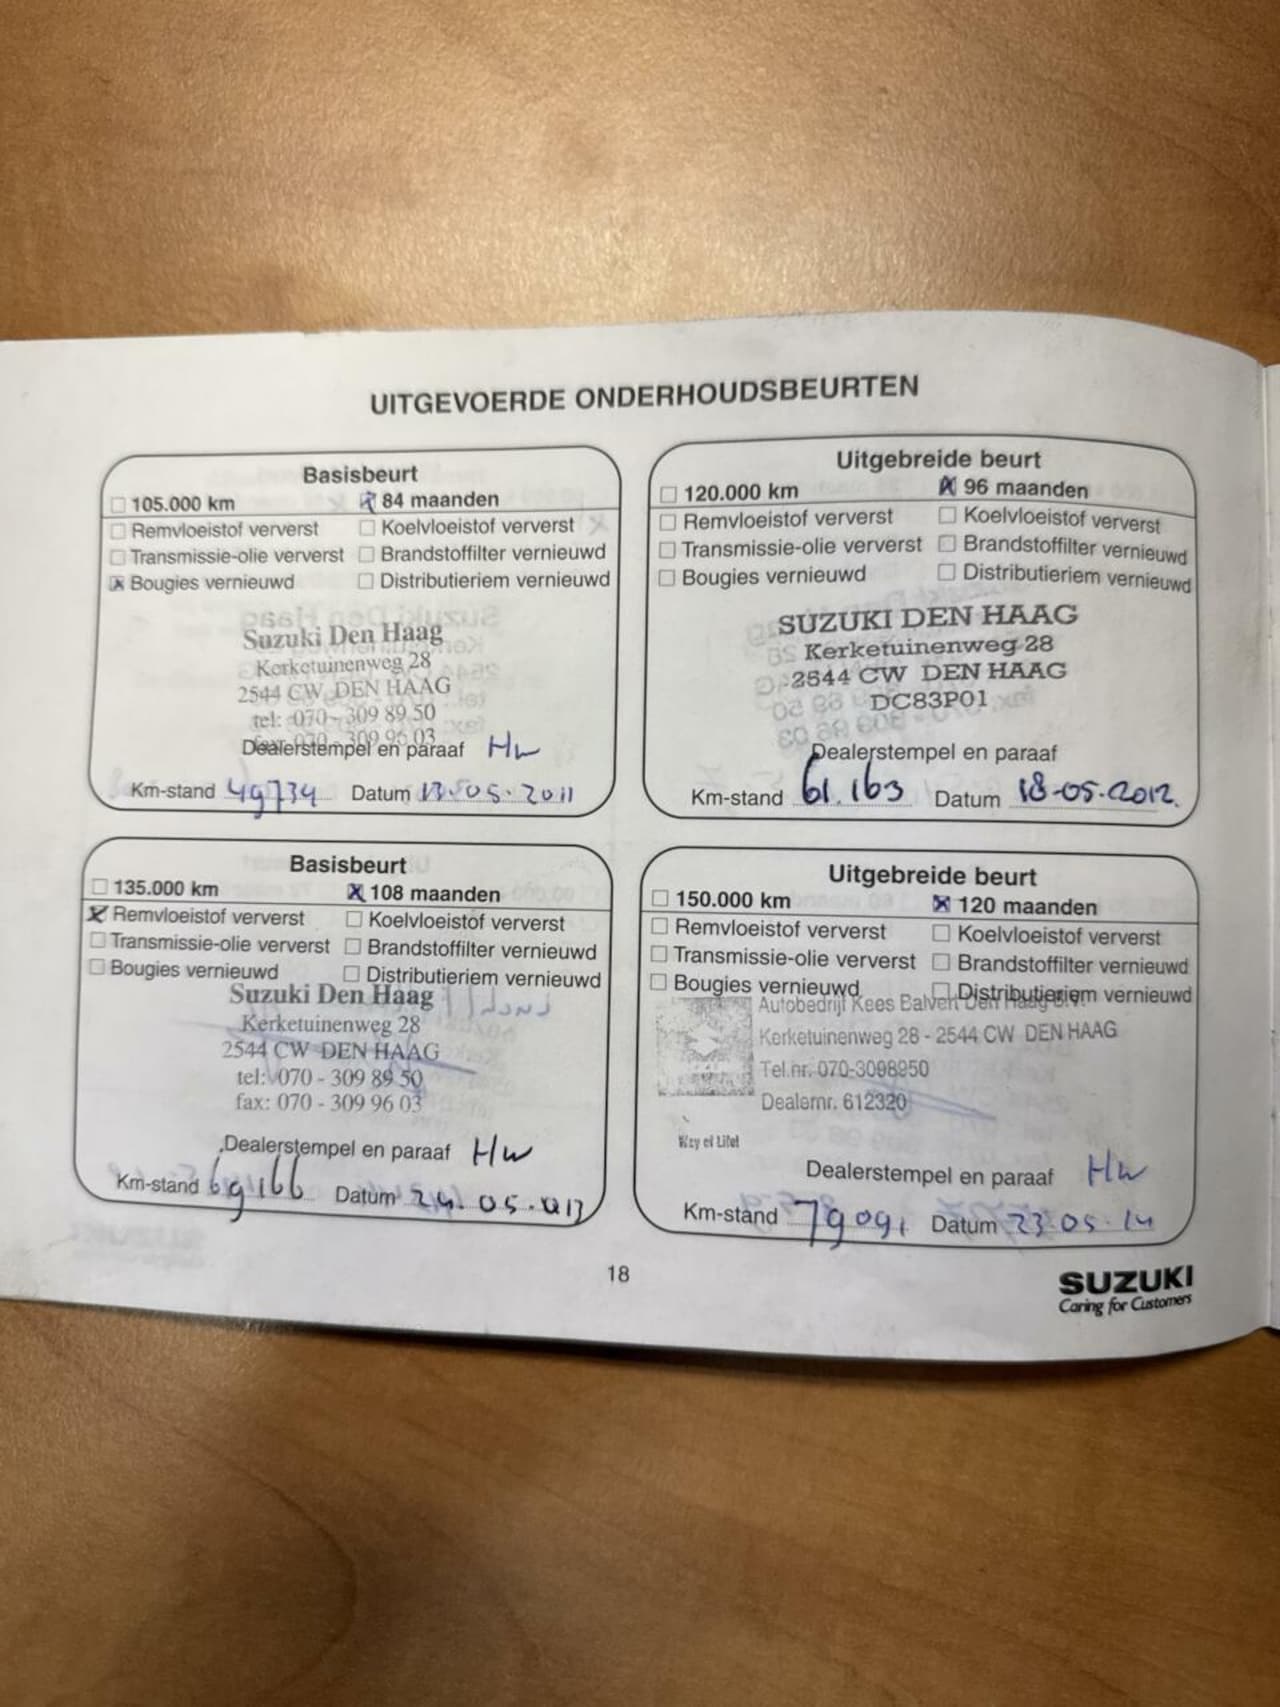 UITGEVOERDE ONDERHOUDSBEURTEN
Basisbeurt
105.000 km 84 maanden
Remvloeistof ververst Koelvloeistof ververst
Transmissie-olie ververst Brandstoffilter vernieuwd
Bougies vernieuwd Distributieriem vernieuwd
Suzuki Den Haag
Kerketuinenweg 28
2544 CW DEN HAAG
tel: 070 - 309 89 50
fax: 070 - 309 96 03
Dealerstempel en paraaf Hw
Km-stand 49734 Datum 13.05.2011
Uitgebreide beurt
120.000 km 96 maanden
Remvloeistof ververst Koelvloeistof ververst
Transmissie-olie ververst Brandstoffilter vernieuwd
Bougies vernieuwd Distributieriem vernieuwd
SUZUKI DEN HAAG
Kerketuinenweg 28
2544 CW DEN HAAG
DC83P01
Dealerstempel en paraaf
Km-stand 61.163 Datum 18-05-2012.
Basisbeurt
135.000 km 108 maanden
Remvloeistof ververst Koelvloeistof ververst
Transmissie-olie ververst Brandstoffilter vernieuwd
Bougies vernieuwd Distributieriem vernieuwd
Suzuki Den Haag
Kerketuinenweg 28
2544 CW DEN HAAG
tel: 070 - 309 89 50
fax: 070 - 309 96 03
Dealerstempel en paraaf Hw
Km-stand 69166 Datum 24.05.2013
Uitgebreide beurt
150.000 km 120 maanden
Remvloeistof ververst Koelvloeistof ververst
Transmissie-olie ververst Brandstoffilter vernieuwd
Bougies vernieuwd Distributieriem vernieuwd
Autobedrijf Kees Balvert Den Haag B.V.
Kerketuinenweg 28 - 2544 CW DEN HAAG
Tel.nr. 070-3098950
Dealernr. 612320
Way of Life!
Dealerstempel en paraaf Hw
Km-stand 79091 Datum 23.05.14
18
SUZUKI
Caring for Customers